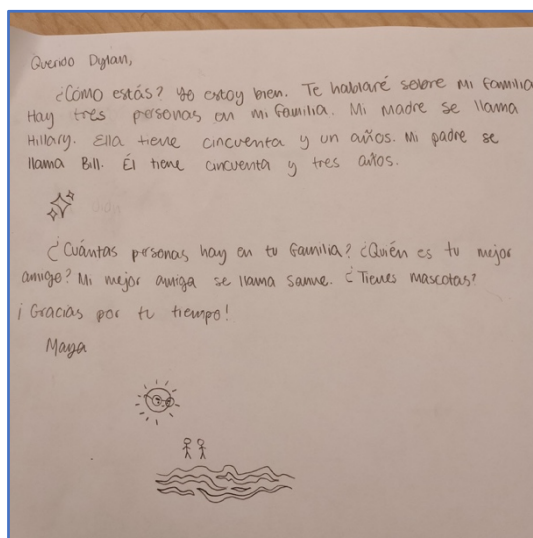 Querido Dylan,
¿Cómo estás? Yo estoy bien. Te hablaré sobre mi familia.
Hay tres personas en mi familia. Mi madre se llama
Hillary. Ella tiene cincuenta y un años. Mi padre se
llama Bill. Él tiene cincuenta y tres años.
¿Cuántas personas hay en tu familia? ¿Quién es tu mejor
amigo? Mi mejor amiga se llama Sanne. ¿Tienes mascotas?
¡Gracias por tu tiempo!
Maya